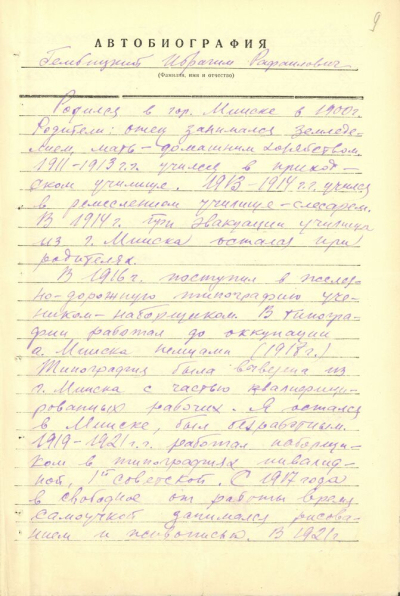 9
АВТОБИОГРАФИЯ
Гембицкий Ибрагим Рафаилович
(Фамилия, имя и отчество)
Родился в гор. Минске в 1900г.
Родители: отец занимался земледе-
лием, мать – домашним хозяйством.
1911-1913 г.г. учился в приход-
ском училище. 1913-1914 г.г. учился
в ремесленном училище – слесарем.
В 1914г. при эвакуации училища
из г. Минска остался при
родителях.
В 1916г. поступил в желез-
но-дорожную типографию уче-
ником-наборщиком. В типогра-
фии работал до оккупации
г. Минска немцами (1918 г.)
Типография была вывезена из
г. Минска с частью квалифици-
рованных рабочих. Я остался
в Минске, был безработным.
1919-1921 г.г. работал наборщи-
ком в типографиях инвалид-
ной, 1ой советской. С 1917 года
в свободное от работы время
самоучкой занимался рисова-
нием и живописью. В 1921г.